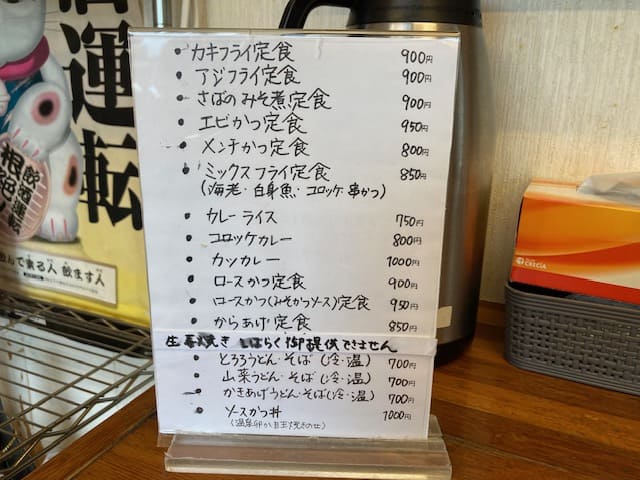 運転
飲酒運転
根絶
んで乗る人 飲ます人
・カキフライ定食 900円
・アジフライ定食 900円
・さばのみそ煮定食 900円
・エビかつ定食 950円
・メンチかつ定食 800円
・ミックスフライ定食 850円
(海老・白身魚・コロッケ・串かつ)
・カレーライス 750円
・コロッケカレー 800円
・カツカレー 1000円
・ロースかつ定食 900円
・(ロースかつ(みそかつソース)定食 950円
・からあげ定食 850円
生姜焼き しばらく御提供できません
・とろろうどん・そば(冷・温) 700円
・山菜うどん・そば(冷・温) 700円
・かきあげうどん・そば(冷・温) 700円
・ソースかつ丼 1000円
(温泉卵か目玉焼きのせ)
CRECIA